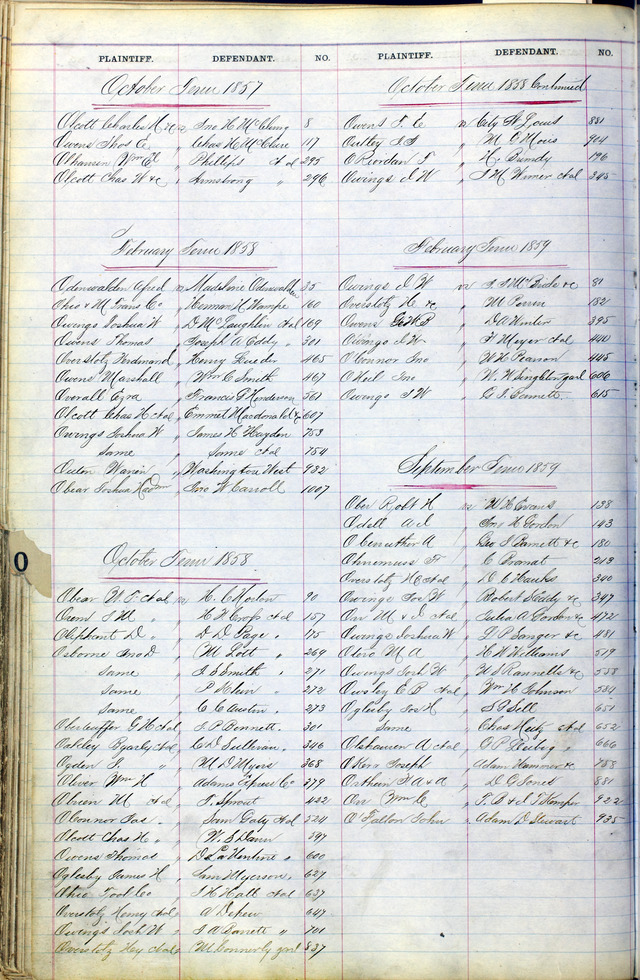 PLAINTIFF. DEFENDANT. NO.
October Term 1857
Olcott Charles H &c vs Jno H McCluny 8
Owens Thos C " Chas H McClure 117
Olshausen Wm E " Phillips &al 295
Olcott Chas H &c " Armstrong " 296
February Term 1858
Odenwalden Alfred vs Madeline Odenwalder 35
Ohio & M Trans Co " Herman H 160
Owings Joshua W " D McLaughlin &al 169
Owens Thomas " Joseph A Eddy " 301
Overstotz Ferdinand " Henry Lueder 465
Owens Marshall " Wm C Smith 467
Overall Ezra " Francis P Henderson 561
Olcott Chas H &al " Emmet Macdonald &c 607
Owings Joshua W " James H Hayden 753
Same " Same &al 754
Outen Warren " Washington West 982
Obear Joshua " Jno W Carroll 1007
O
October Term 1858
Obear W T &al vs H C 90
Orem J M " H H Crop &al 157
Oliphant D " D D Page " 175
Osborne Jno D " M Lott " 269
Same " J S Smith " 271
Same " P Klein " 272
Same " C C Austin " 273
Oberteuffer G H &al " J P Bennett 301
Oakley &al " C D Sullivan " 346
Ogden S " " M D Myers 368
Oliver Wm H " Adams Express Co 379
Obrien M &al " J Sprout 432
OConnor Jas " Sam Gaty &al 524
Olcott Chas H " " W S Dann 597
Owens Thomas " D Valentine " 600
Oglesby James H " Sam Myerson " 627
Ohio Tool Co " J H Hall &al 637
Overstotz Henry &al " A Depew 647
Owings Josh W " J A Barrett " 701
Overstotz Hey &al " M Connerly garl 837
PLAINTIFF. DEFENDANT. NO.
October Term 1858 Continued
Owens T. E vs City St Louis 881
Outley J J " M O Mois 904
O Riordan T " H Bundy 196
Owings J W " J M Wimer &al 345
February Term 1859
Owings J W vs J J McBride &c 81
Overstotz H &c " M Perrin 182
Owens Geo W B " D A Winter 395
Owings J W " F Meyer &al 440
OConnor Jno " W H Pearson 445
ONeil Jno " W W Singleton garl 606
Owings J W " G J Cernett 615
September Term 1859
Ober Robt H vs W H Evans 138
Odell A J " Jno H Gordon 143
Obenuther A " Geo J Barnett &c 180
Ohnemuss F " E Branat 213
Overstotz H &al " D E Hawks 340
Owings Jos W " Robert S Eddy &c 347
Orr M & J &al " Julia A Gordon &c 472
Owings Joshua W " T P Sanger &c 481
Otero M A " H W Williams 519
Owings Josh W " W S Rannells &c 558
Owsley C B &al " Wm H Johnson 584
Oglesby Jos H " S P Sell 651
Same " Chas Heitz &al 652
Olshausen A &al " G P Herbig " 666
OKera Joseph " Adam Hammer &c 758
Orthein F A & A " D G Jones 881
Orr Wm C " T. B & J T Kemper 922
O'Fallon John " Adam D Stewart 935